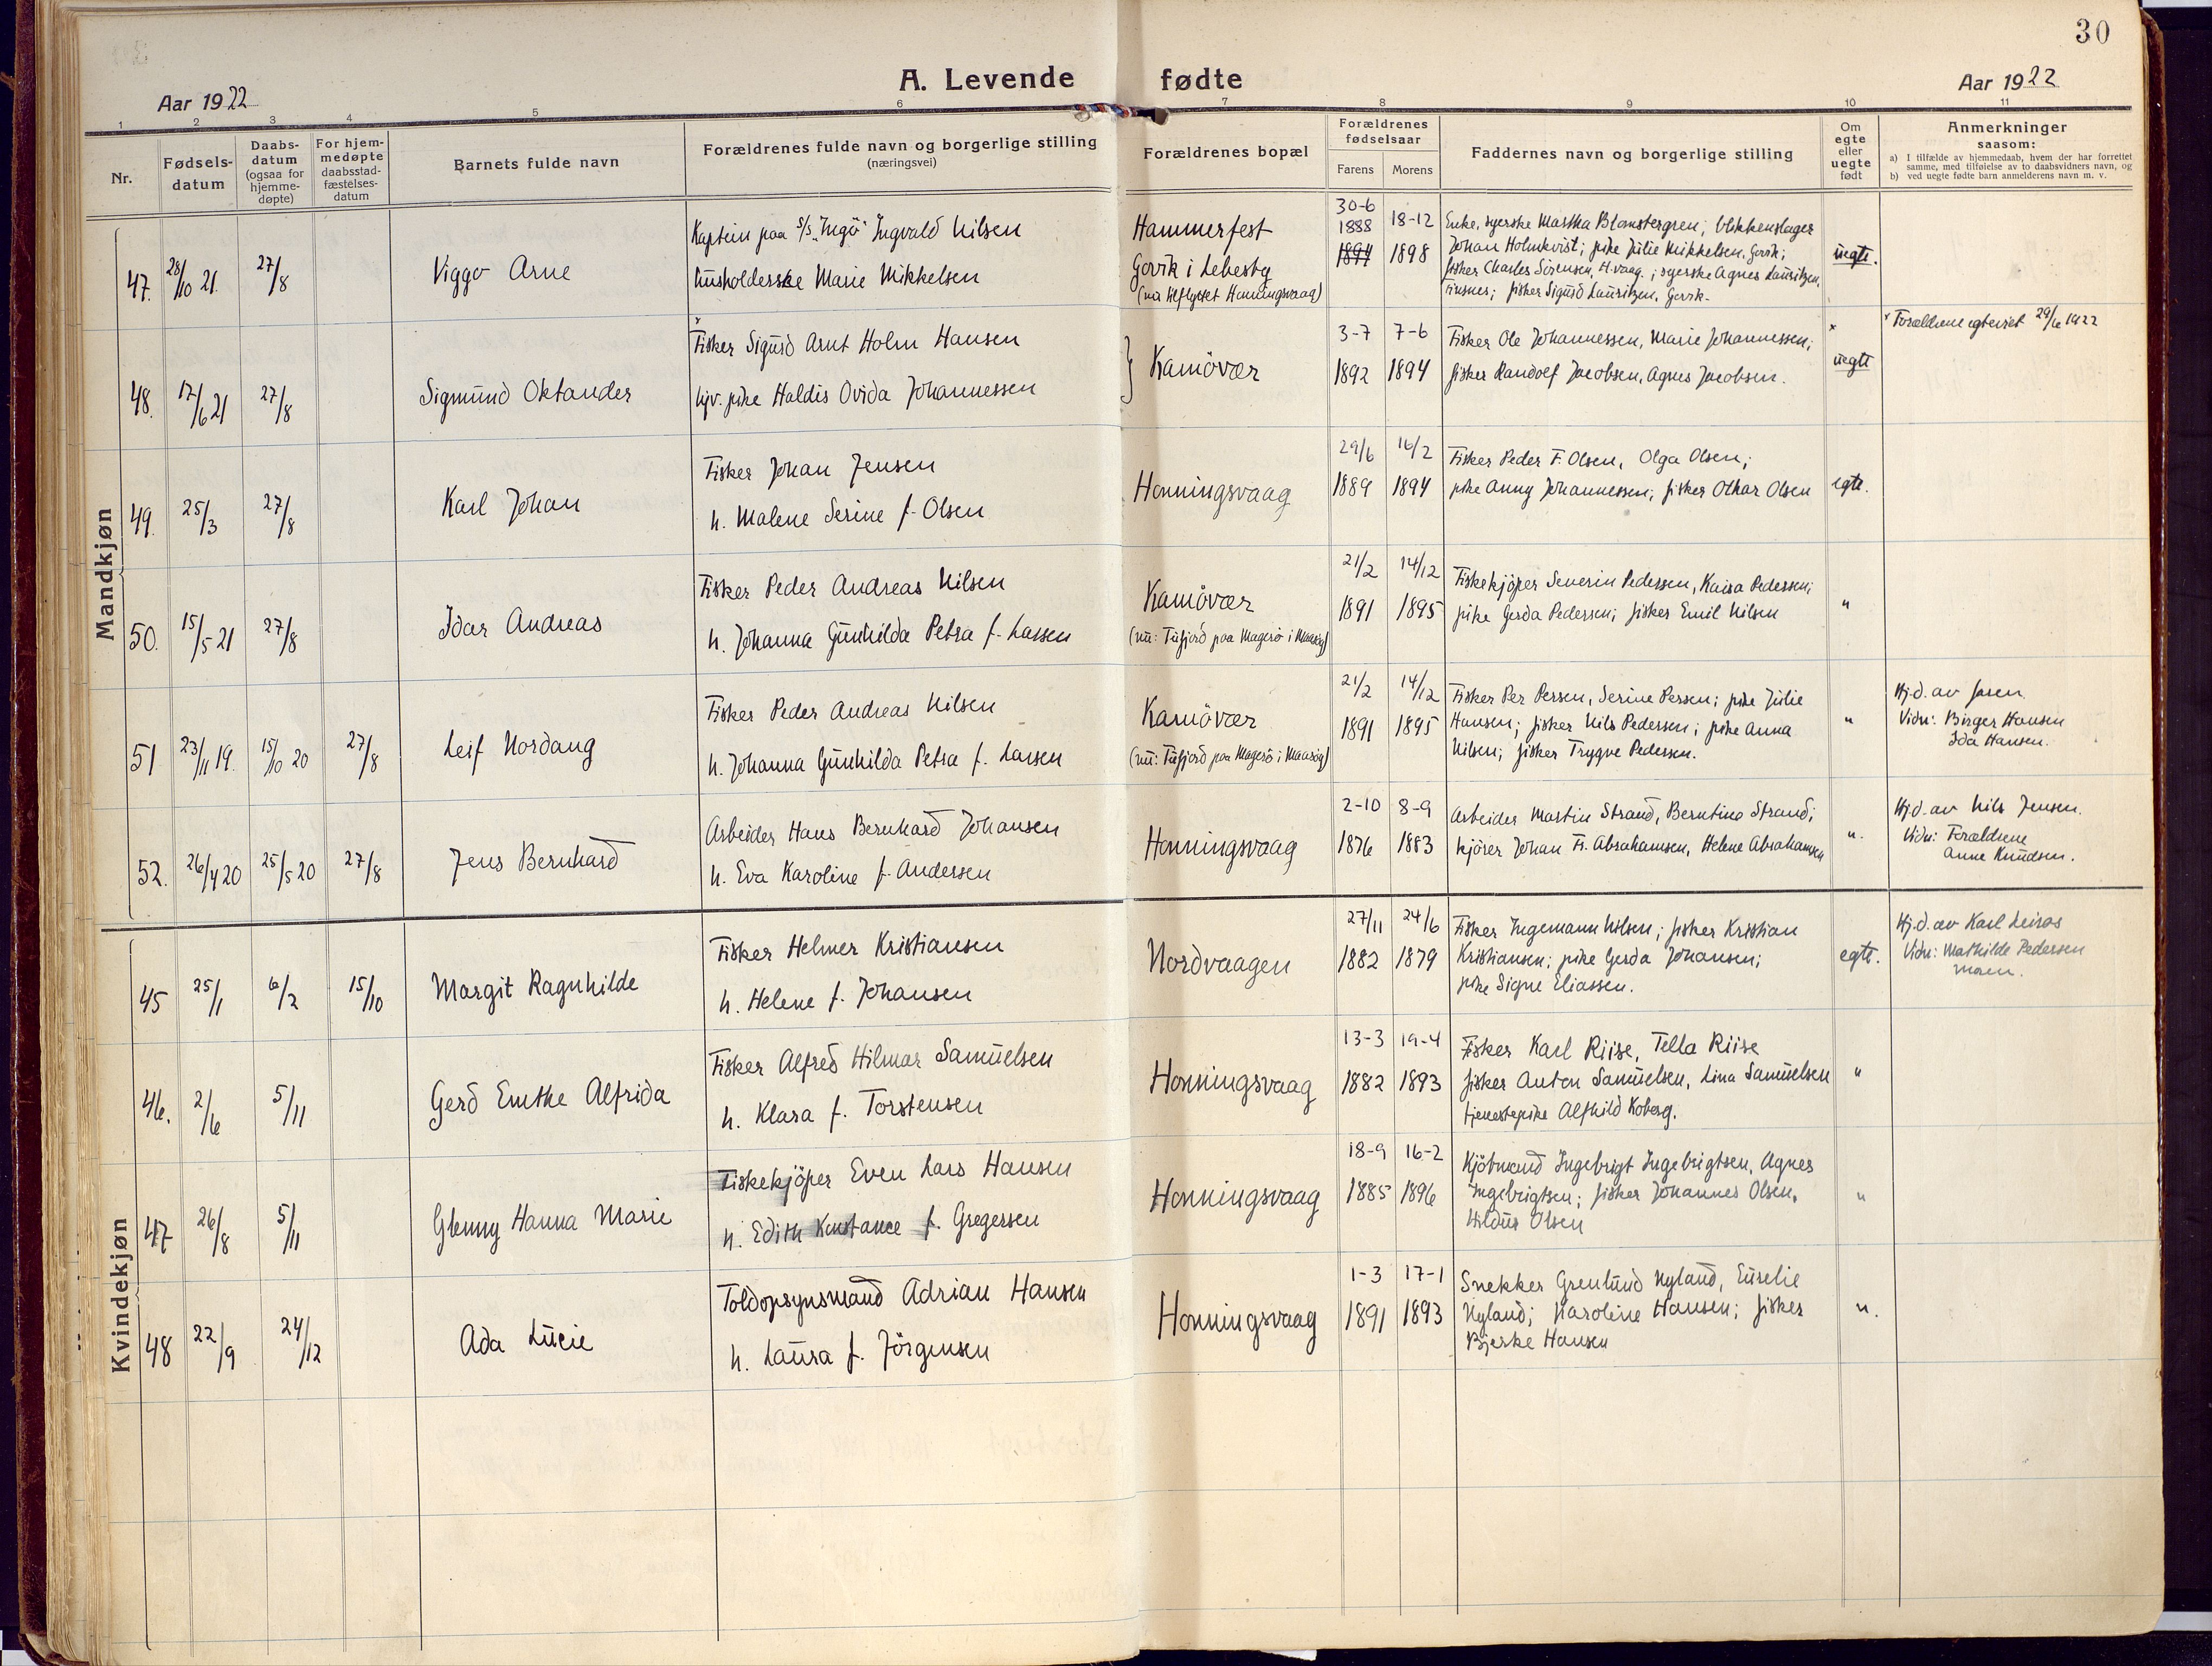 30
A. Levende fødte
Aar 1922
Aar 1922
1 2 3 4 5 6 7 8 9 10 11
Nr.
Fødsels-
datum
Daabs-
datum
(ogsaa for
hjemme-
døpte)
For hjem-
medøpte
daabsstad-
fæstelses-
datum
Barnets fulde navn
Forældrenes fulde navn og borgerlige stilling
(næringsvei)
Forældrenes bopæl
Forældrenes
fødselsaar
Farens Morens
Faddernes navn og borgerlige stilling
Om
egte
eller
uegte
født
Anmerkninger
saasom:
a) I tilfælde av hjemmedaab, hvem der har forrettet
samme, med tilføielse av to daabsvidners navn, og
b) ved uegte fødte barn anmelderens navn m. v.
Mandkjøn
47. 28/10 21. 27/8 Viggo Arne
Kaptein paa S/S "Ingö" Ingvald Nilsen
husholderske Marie Mikkelsen
Hammerfest
Gorvik i Lebesby
30-6
1888 18-12
1894 1898
Enke, syerske Martha Blomstergren; blikkenslager
Johan Holmkvist; pike Julie Mikkelsen, Gorvik;
fisker Charles Sörensen, H.vaag.; syerske Agnes Lauritzen,
fisker Sigurd Lauritzen, Gorvik.
uegte.
48. 17/6 21 27/8 Sigmund Oktander
× Fisker Sigurd Arnt Holm Hansen
hjv. pike Haldis Ovida Johannessen
} Kamövær
3-7 7-6
1892 1894
Fisker Ole Johannessen, Marie Johannessen;
fisker Randolf Jacobsen, Agnes Jacobsen.
× uegte
× Forældrene egteviet 29/6 1922
49. 25/3 27/8 Karl Johan
Fisker Johan Jensen
h. Malene Serine f. Olsen
Honningsvaag
29/6 16/2
1889 1894
Fisker Peder F. Olsen, Olga Olsen;
pike Anny Johannessen; fisker Othar Olsen
egte.
50. 15/5 21 27/8 Idar Andreas
Fisker Peder Andreas Nilsen
h. Johanna Gunhilda Petra f. Larsen
Kamövær
(nu: Tufjord paa Magerö i Maasöy)
21/2 14/12
1891 1895
Fiskekjöper Severin Pedersen, Kaisa Pedersen;
pike Gerda Pedersen; fisker Emil Nilsen
"
51 23/11 19. 15/10 20 27/8 Leif Nordang
Fisker Peder Andreas Nilsen
h. Johanna Gunhilda Petra f. Larsen
Kamövær
(nu: Tufjord paa Magerö i Maasöy)
21/2 14/12
1891 1895
Fisker Per Persen, Serine Persen; pike Julie
Hansen; fisker Nils Pedersen; pike Anna
Nilsen; fisker Trygve Pedersen.
"
Hj.d. av faren
Vidn: Birger Hansen
Ida Hansen.
52. 26/4 20 25/5 20 27/8 Jens Bernhard
Arbeider Hans Bernhard Johansen
h. Eva Karoline f. Andersen
Honningsvaag
2-10 8-9
1876 1883
Arbeider Martin Strand, Berntine Strand;
kjörer Johan Fr. Abrahamsen, Helene Abrahamsen
".
Hj.d. av Nils Jensen.
Vidn: Forældrene
Anne Knudsen.
Kvindekjøn
45 25/1 6/2 15/10 Margit Ragnhilde
Fisker Helmer Kristiansen
h. Helene f. Johansen
Nordvaagen
27/11 24/6
1882 1879
Fisker Ingemann Nilsen; fisker Kristian
Kristiansen; pike Gerda Johansen;
pike Signe Eliassen.
egte.
Hj.d. av Karl Leiros
Vidn: Mathilde Pedersen
moren.
46. 2/6 5/11 Gerd Emthe Alfrida
Fisker Alfred Hilmar Samuelsen
h. Klara f. Torstensen
Honningsvaag
13-3 19-4
1882 1893
Fisker Karl Riise, Tella Riise
fisker Anton Samuelsen, Lina Samuelsen
tjenestepike Alfhild Koberg.
"
47 26/8 5/11 Glenny Hanna Marie
Fiskekjöper Even Lars Hansen
h. Edith Konstance f. Gregersen
Honningsvaag
18-9 16-2
1885 1896
Kjöbmand Ingebrigt Ingebrigtsen, Agnes
Ingebrigtsen; fisker Johannes Olsen,
Hildur Olsen
"
48 22/9 24/12 Ada Lucie
Toldopsynsmand Adrian Hansen
h. Laura f. Jörgensen
Honningsvaag
1-3 17-1
1891 1893
Snekker Grenlund Nyland, Eurelie
Nyland; Karoline Hansen; fisker
Bjerke Hansen
".